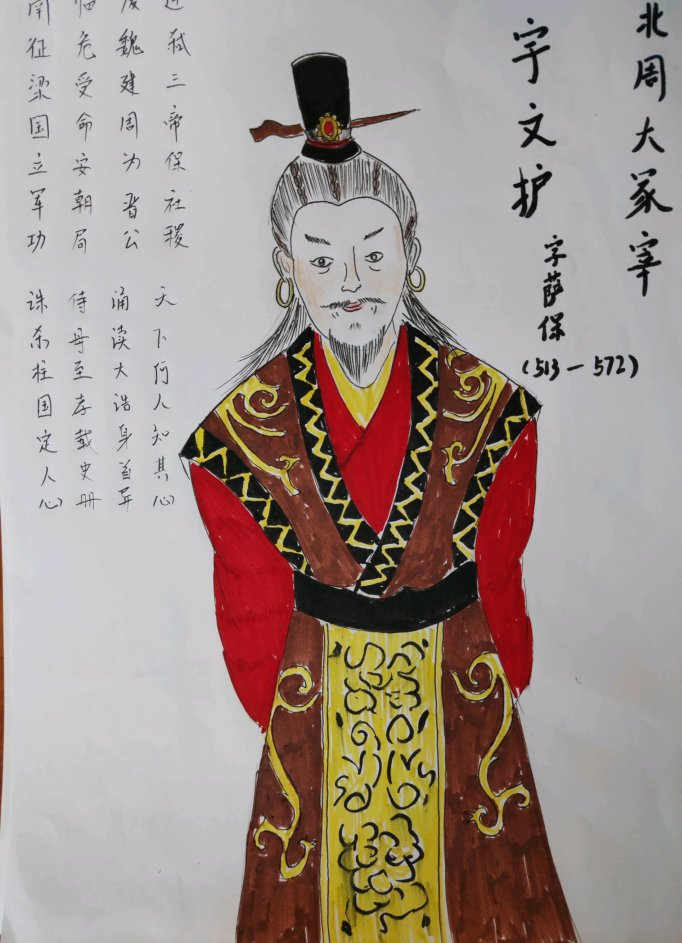 北周大冢宰
宇文护
字萨保
(513—572)
连弑三帝保社稷 天下何人知其心
废魏建周为晋公 诵读大诰身首异
临危受命安朝局 侍母至孝载史册
南征梁国立军功 诛杀柱国定人心